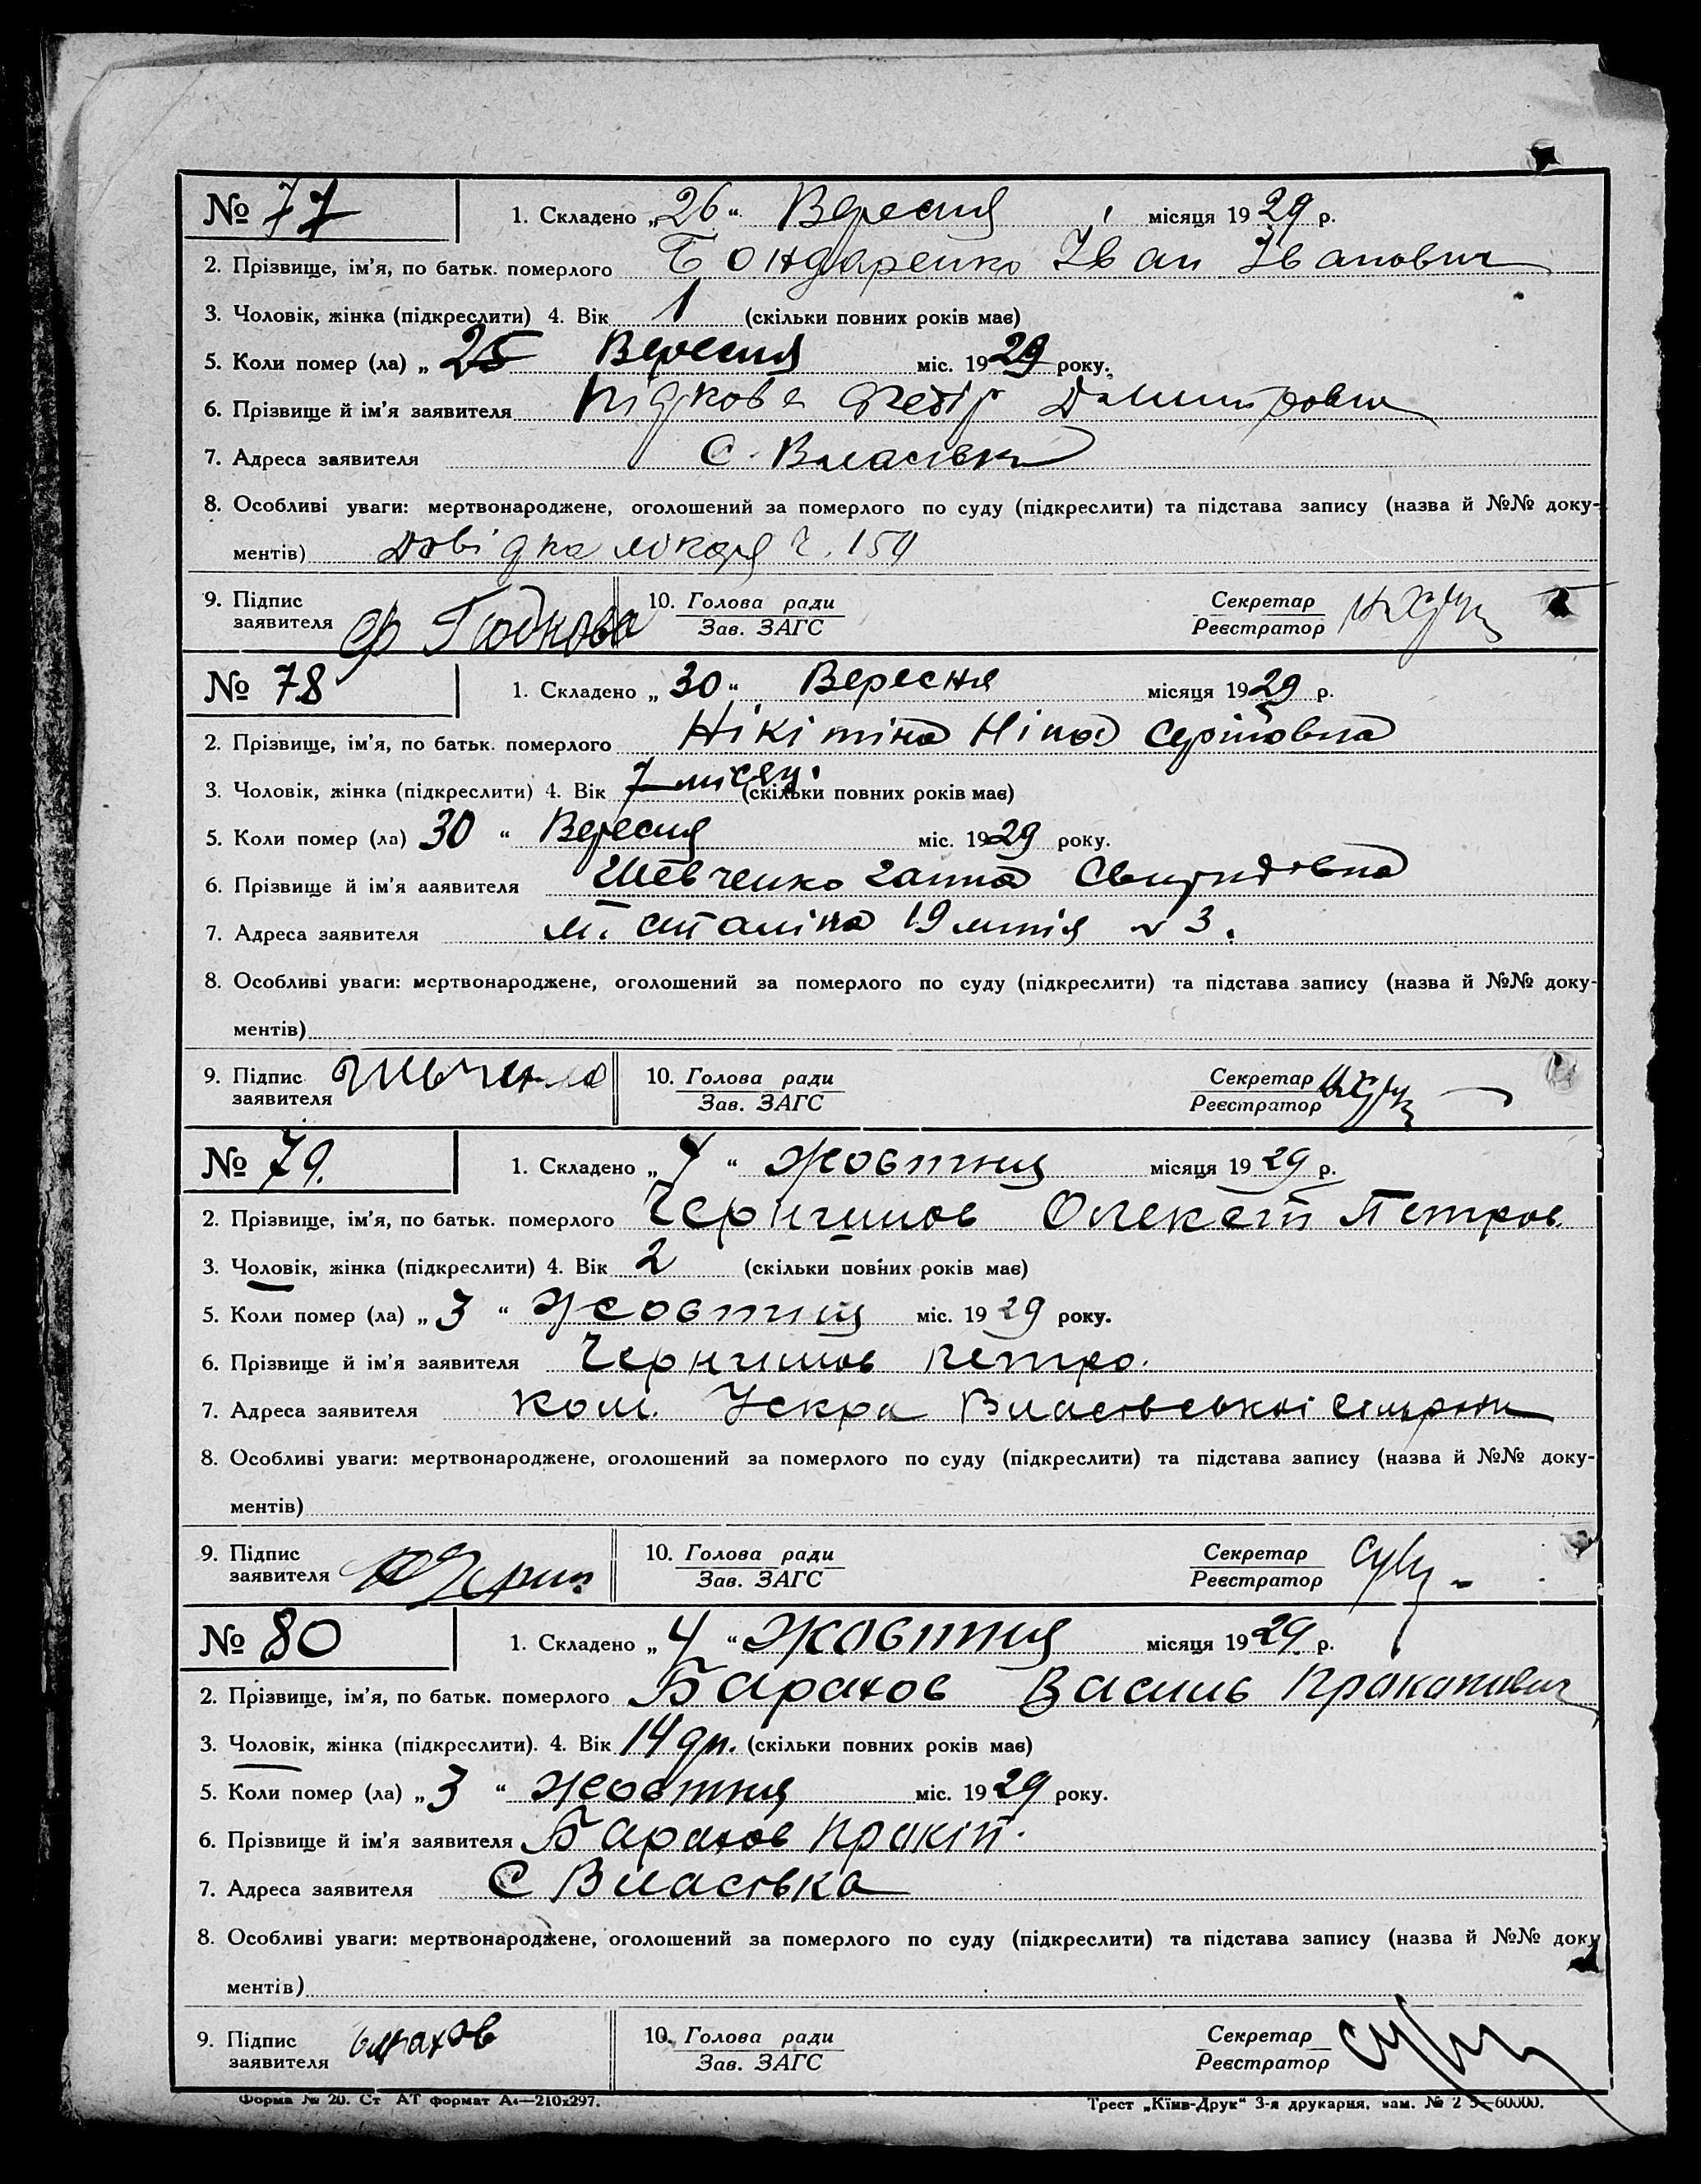 № 77 1. Складено „26“ Вересня місяця 1929 р.
2. Прізвище, ім'я, по батьк. померлого Бондаренко Іван Іванович
3. Чоловік, жінка (підкреслити) 4. Вік 1 (скільки повних років має)
5. Коли помер (ла) „ 25 Вересня міс. 1929 року.
6. Прізвище й ім'я заявителя Підкова
7. Адреса заявителя С. Власівка
8. Особливі уваги: мертвонароджене, оголошений за померлого по суду (підкреслити) та підстава запису (назва й №№ доку-
ментів) Довідка лікаря ч. 154
9. Підпис 10. Голова ради Секретар
заявителя Зав. ЗАГС Реєстратор
№ 78 1. Складено „30“ Вересня місяця 1929 р.
2. Прізвище, ім'я, по батьк. померлого Нікітіна Ніна
3. Чоловік, жінка (підкреслити) 4. Вік 7 місяц. (скільки повних років має)
5. Коли помер (ла) 30 “ Вересня міс. 1929 року.
6. Прізвище й ім'я заявителя Шевченко Ганна Свиридовна
7. Адреса заявителя м. Сталіна 19 линія № 3.
8. Особливі уваги: мертвонароджене, оголошений за померлого по суду (підкреслити) та підстава запису (назва й №№ доку-
ментів)
9. Підпис 10. Голова ради Секретар
заявителя Зав. ЗАГС Реєстратор
№ 79. 1. Складено „4“ Жовтня місяця 1929 р.
2. Прізвище, ім'я, по батьк. померлого Чернишов Олексій Петров.
3. Чоловік, жінка (підкреслити) 4. Вік 2 (скільки повних років має)
5. Коли помер (ла) „3“ Жовтня міс. 1929 року.
6. Прізвище й ім'я заявителя Чернишов Петро.
7. Адреса заявителя Ком. Іскра Власівської сільради
8. Особливі уваги: мертвонароджене, оголошений за померлого по суду (підкреслити) та підстава запису (назва й №№ доку-
ментів)
9. Підпис 10. Голова ради Секретар
заявителя Зав. ЗАГС Реєстратор
№ 80 1. Складено „4“ Жовтня місяця 1929 р.
2. Прізвище, ім'я, по батьк. померлого Барахов Василь Пракапович
3. Чоловік, жінка (підкреслити). 4. Вік 14 дн. (скільки повних років має)
5. Коли помер (ла) „3“ Жовтня міс. 1929 року.
6. Прізвище й ім'я заявителя Барахов Пракіп.
7. Адреса заявителя С Власівка
8. Особливі уваги: мертвонароджене, оголошений за померлого по суду (підкреслити) та підстава запису (назва й №№ доку
ментів)
9. Підпис 10. Голова ради Секретар
заявителя Зав. ЗАГС Реєстратор
Форма № 20. Ст АТ формат А₄—210х297. Трест „Київ-Друк“ 3-я друкарня, зам. № 2 5—60000.